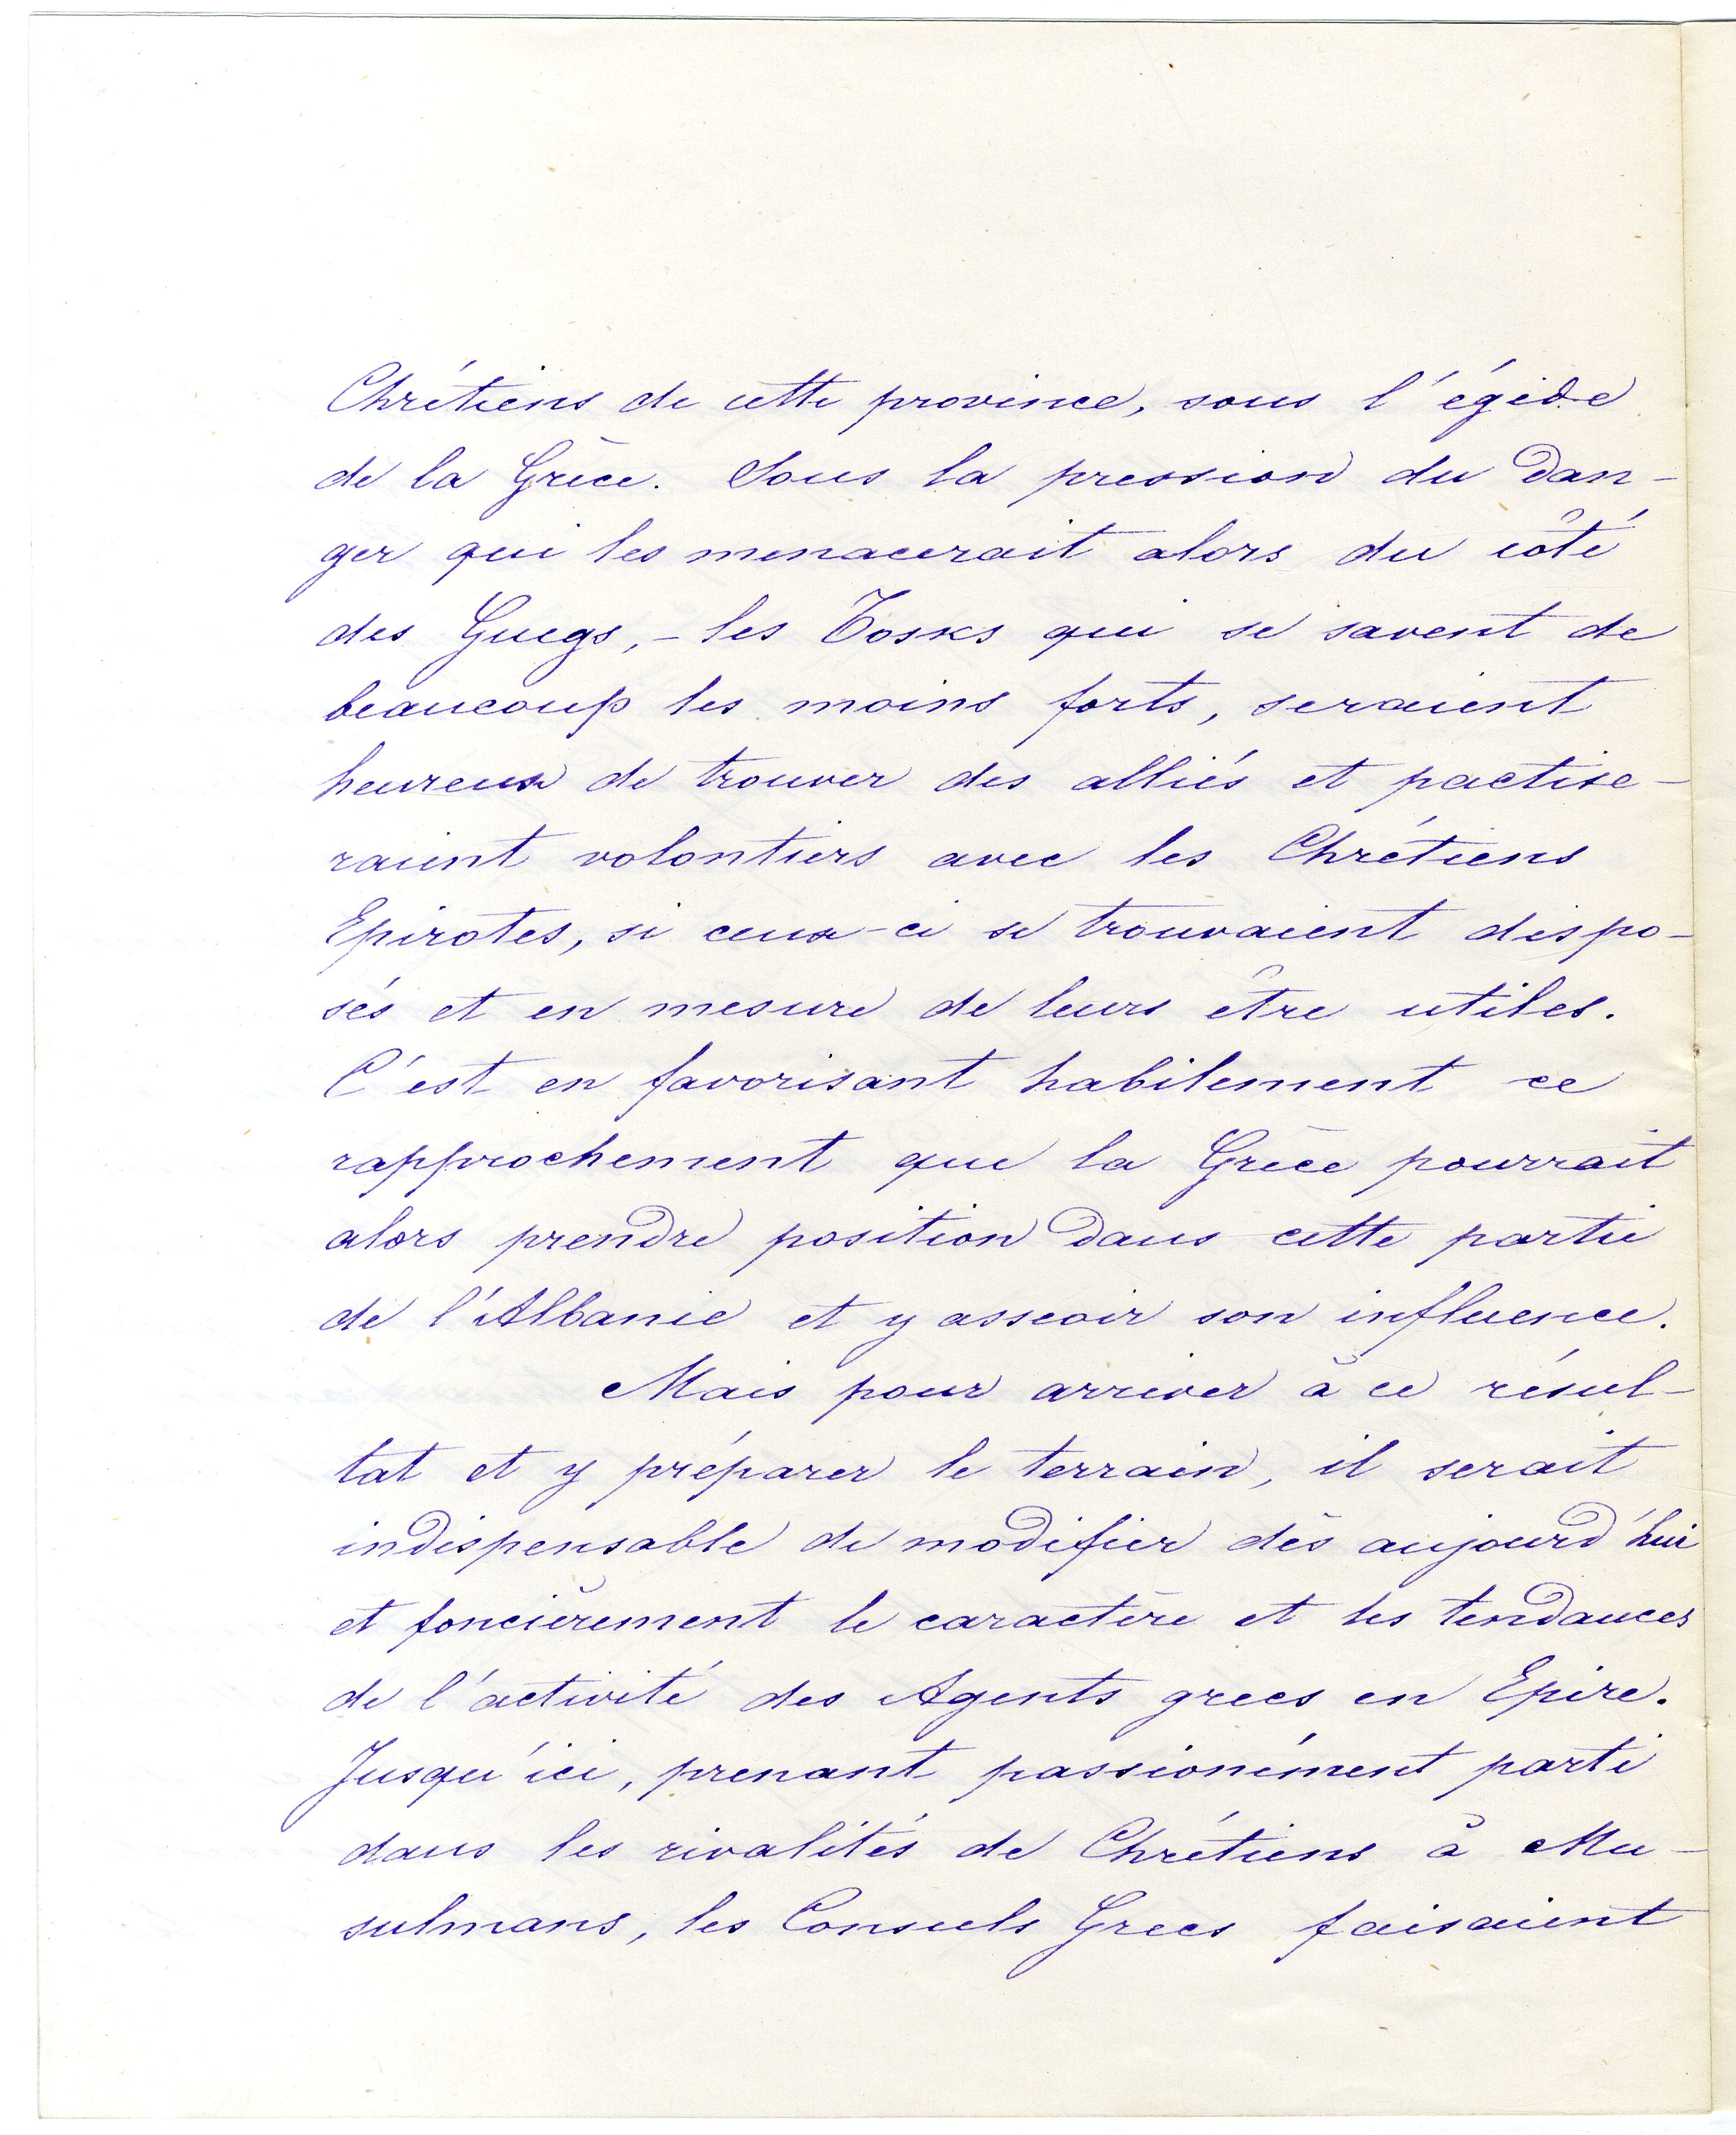 Chrétiens de cette province, sous l'égide
de la Grèce. Sous la pression du dan-
ger qui les menacerait alors du côté
des Guegs, - les Tosks qui se savent de
beaucoup les moins forts, seraient
heureux de trouver des alliés et pactise-
raient volontiers avec les Chrétiens
Epirotes, si ceux-ci se trouvaient dispo-
sés et en mesure de leurs être utiles.
C'est en favorisant habilement ce
rapprochement que la Grèce pourrait
alors prendre position dans cette partie
de l'Albanie et y asseoir son influence.
Mais pour arriver à ce résul-
tat et y préparer le terrain, il serait
indispensable de modifier dès aujourd'hui
et foncièrement le caractère et les tendances
de l'activité des Agents grecs en Epire.
Jusqu'ici, prenant passionément parti
dans les rivalités de Chrétiens à Mu-
sulmans, les Consuls Grecs faisaient